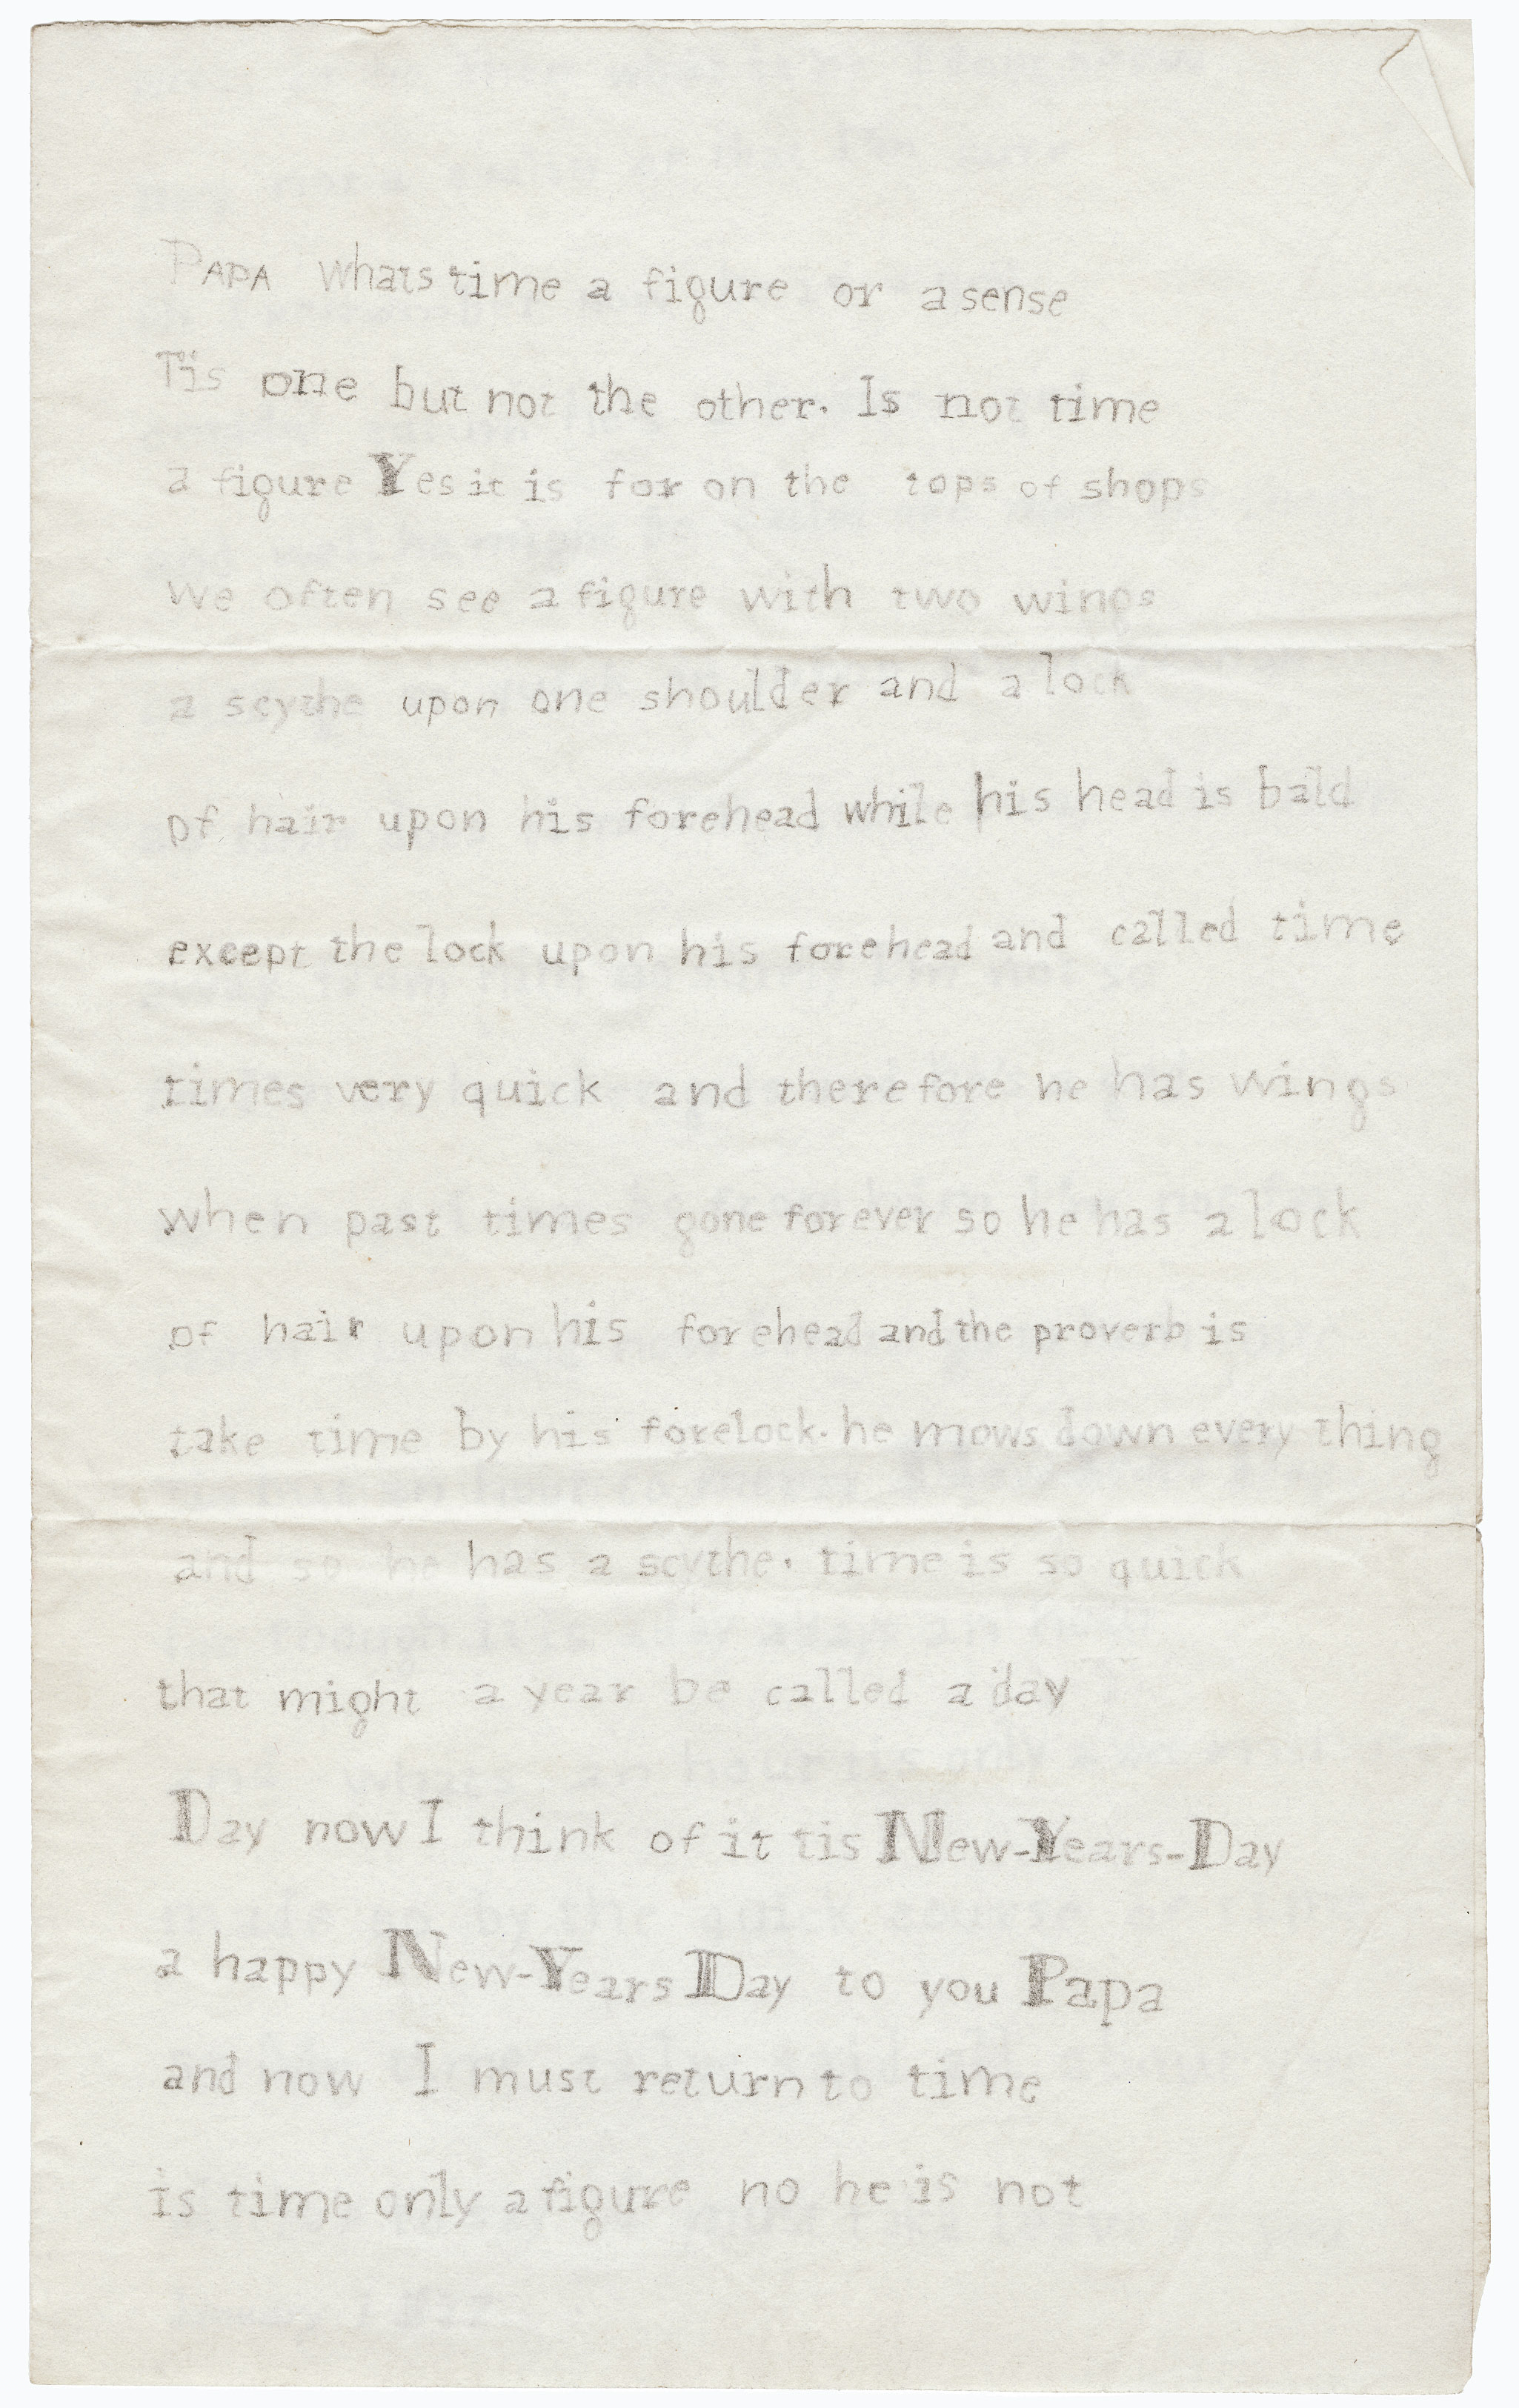 PAPA whats time a figure or a sense
Tis one but not the other. Is not time
a figure Yes it is for on the tops of shops
we often see a figure with two wings
a scythe upon one shoulder and a lock
of hair upon his forehead while his head is bald
except the lock upon his forehead and called time
times very quick and therefore he has wings
when past times gone forever so he has a lock
of hair upon his forehead and the proverb is
take time by his forelock. he mows down every thing
and so he has a scythe. time is so quick
that might a year be called a day
Day now I think of it tis New-Years-Day
a happy New-Years Day to you Papa
and now I must return to time
is time only a figure no he is not